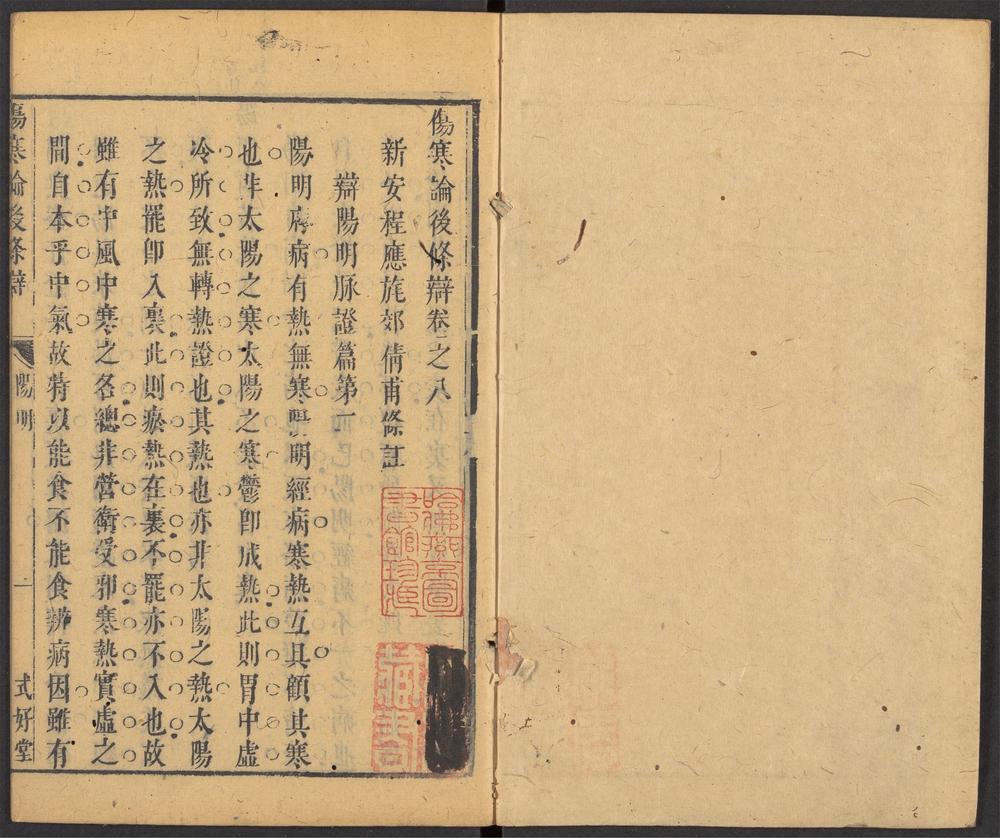 傷寒論後條辯卷之八
新安程應旄郊倩甫條註
辯陽明脉證篇第一
陽明腑病有熱無寒陽明經病寒熱互具顧其寒
也非太陽之寒太陽之寒鬱卽成熱此則胃中虛
冷所致無轉熱證也其熱也亦非太陽之熱太陽
之熱罷卽入裏此則瘀熱在裏不罷亦不入也故
雖有中風中寒之名總非營衛受邪寒熱實虛之
間自本乎中氣故特以能食不能食辨病因雖有
傷寒論後條辯 陽明 一 式好堂
哈佛燕京圖書館珍藏